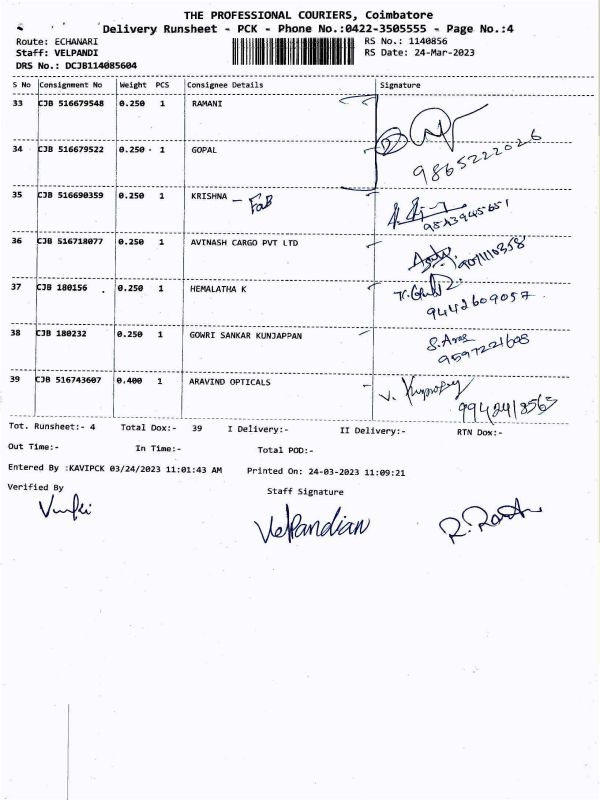 THE PROFESSIONAL COURIERS, Coimbatore
Delivery Runsheet - PCK - Phone No.:0422-3505555 - Page No.:4
Route: ECHANARI RS No.: 1140856
Staff: VELPANDI RS Date: 24-Mar-2023
DRS No.: DCJB114085604
S No Consignment No Weight PCS Consignee Details Signature
33 CJB 516679548 0.250 1 RAMANI
34 CJB 516679522 0.250 1 GOPAL
9865222026
35 CJB 516690359 0.250 1 KRISHNA - Fab
9543945651
36 CJB 516718077 0.250 1 AVINASH CARGO PVT LTD
37 CJB 180156 0.250 1 HEMALATHA K
9442609057
38 CJB 180232 0.250 1 GOWRI SANKAR KUNJAPPAN
9597221608
39 CJB 516743607 0.400 1 ARAVIND OPTICALS
9942418563
Tot. Runsheet:- 4 Total Dox:- 39 I Delivery:- II Delivery:- RTN Dox:-
Out Time:- In Time:- Total POD:-
Entered By :KAVIPCK 03/24/2023 11:01:43 AM Printed On: 24-03-2023 11:09:21
Verified By Staff Signature
Velpandian